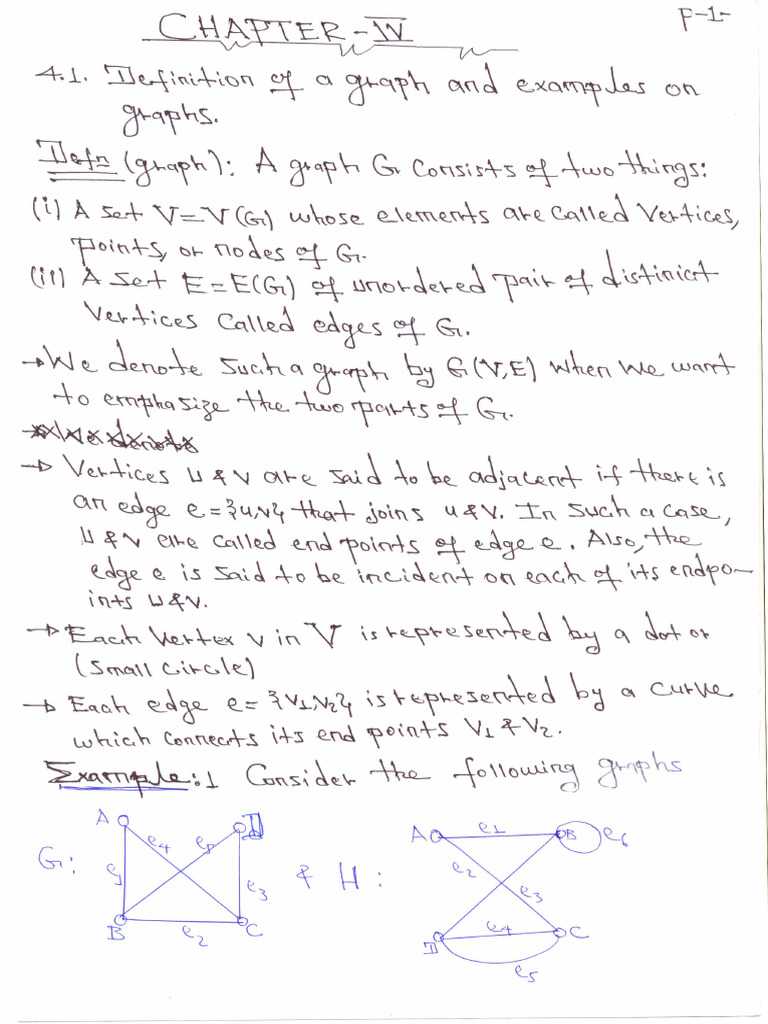 P-1-
CHAPTER-IV
4.1. Definition of a graph and examples on
graphs.
Defn (graph): A graph G consists of two things:
(i) A set V=V(G) whose elements are called vertices,
points, or nodes of G.
(ii) A set E=E(G) of unordered pair of distinict
vertices called edges of G.
→ We denote such a graph by G(V,E) when we want
to emphasize the two parts of G.
→ We denote
→ Vertices u & v are said to be adjacent if there is
an edge e={u,v} that joins u & v. In such a case,
u & v are called end points of edge e. Also, the
edge e is said to be incident on each of its endpo-
ints u & v.
→ Each vertex v in V is represented by a dot or
(small circle)
→ Each edge e={v1,v2} is represented by a curve
which connects its end points V1 & V2.
Example:1 Consider the following graphs
G:
A
e4
e5
D
e3
B
e2
C
& H:
A
e1
B
e6
e2
e3
D
e4
C
e5